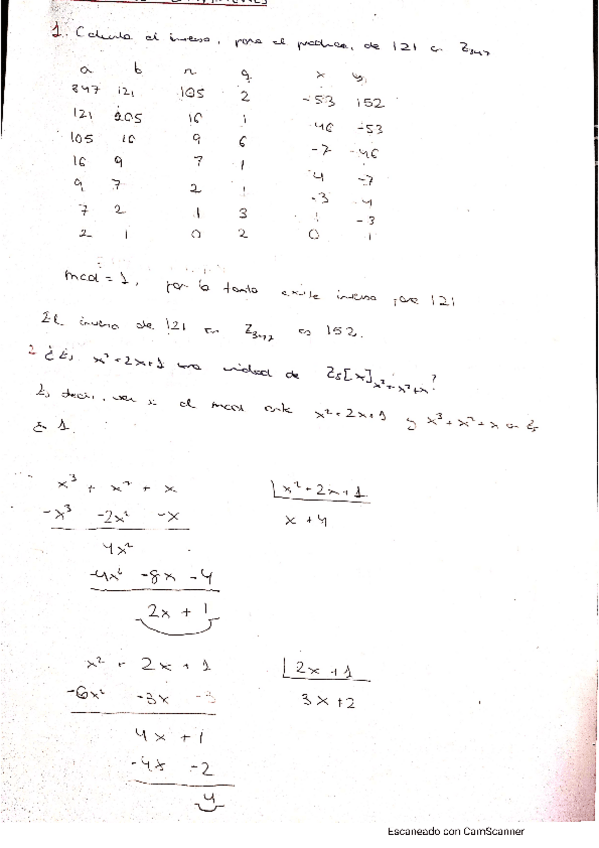 1. Calcula el inverso, para el producto, de 121 en Z₃₄₇
a b r q x y
347 121 105 2 -53 152
121 105 16 1 -46 -53
105 16 9 6 -7 -46
16 9 7 1 4 -7
9 7 2 1 -3 4
7 2 1 3 1 -3
2 1 0 2 0 1
mcd = 1, por lo tanto existe inverso para 121
El inverso de 121 en Z₃₄₇ es 152.
2 ¿Es x²+2x+1 una unidad de Z₅[x]ₓ³₊ₓ²₊ₓ?
Es decir, ver si el mcd entre x²+2x+1 y x³+x²+x en Z₅
es 1.
x³ + x² + x x²+2x+1
-x³ -2x² -x x+4
4x²
-4x² -8x -4
2x + 1
x² + 2x + 1 2x+1
-6x² -3x -3 3x+2
4x + 1
-4x -2
4
Escaneado con CamScanner